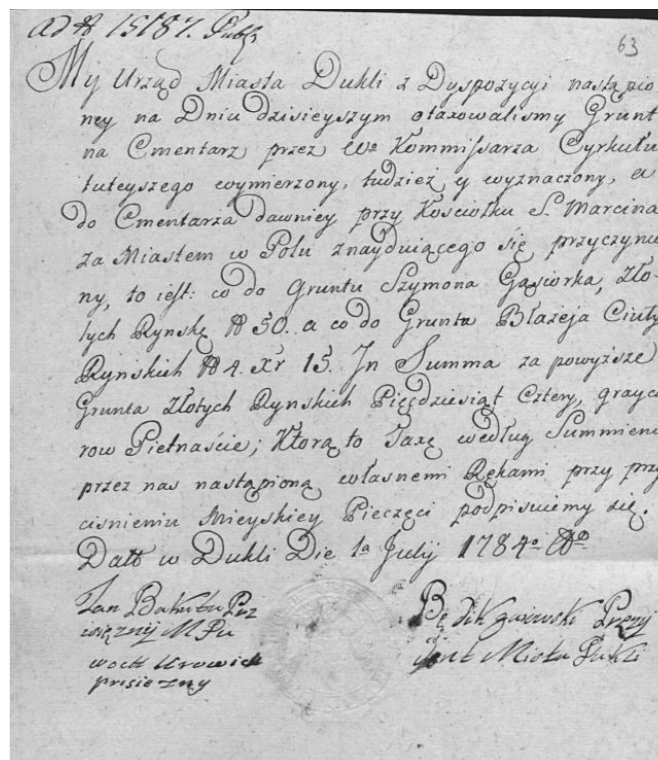 ad № 15187. Publ.
63
My Urząd Miasta Dukli z Dyspozycyi nastąpio
ney na Dniu dzisieyszym otaxowalismy Grunt
na Cmentarz przez We Kommissarza Cyrkułu
tuteyszego wymierzony, tudzież y wyznaczony, a
do Cmentarza dawniey przy Kosciołku S. Marcina
za Miastem w Polu znayduiącego się przyczynio
ny, to iest: co do Gruntu Szymona Gąsiorka, Zło-
tych Rynskę № 50. a co do Grunta Błażeja Ciuły
Rynskich № 4. Xr 15. In Summa za powyższe
Grunta Złotych Rynskich Pięcdziesiąt Cztery, grayca
row Pietnaście; Ktorą to Taxę według Summieni
przez nas nastąpioną własnemi Rękami przy przy
cisnieniu Mieyskiey Pieczęci podpisuiemy się.
Datt w Dukli Die 1a July 1784o
Jan Prz
więznij M
prisiezny
Miasta Dukli